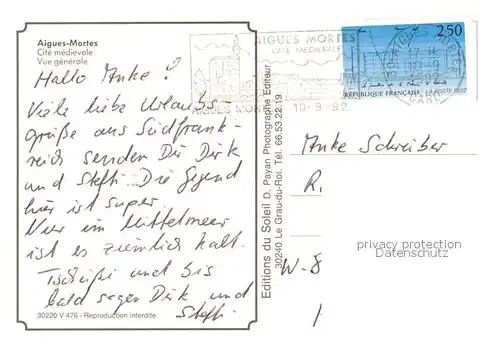 Aigues-Mortes
Cité médiévale
Vue générale
Hallo Anke!
Viele liebe Urlaubs-
grüße aus Südfrank-
reich senden Dir Dirk
und Steffi. Die Gegend
hier ist super.
Nur im Mittelmeer
ist es ziemlich kalt.
Tschüßi und bis
bald sagen Dirk und
Steffi
30220 V 476 - Reproduction interdite
Editions du Soleil D. Payan Photographe Editeur
30240 Le Grau-du-Roi. Tél. 66.53.22.19
AIGUES MORTES
CITE MEDIEVALE
AIGUES MORTES
10-9-92
GARD
2,50
RÉPUBLIQUE FRANÇAISE LA POSTE 1992
Anke Schreiber
R.
W-8
privacy protection
Datenschutz